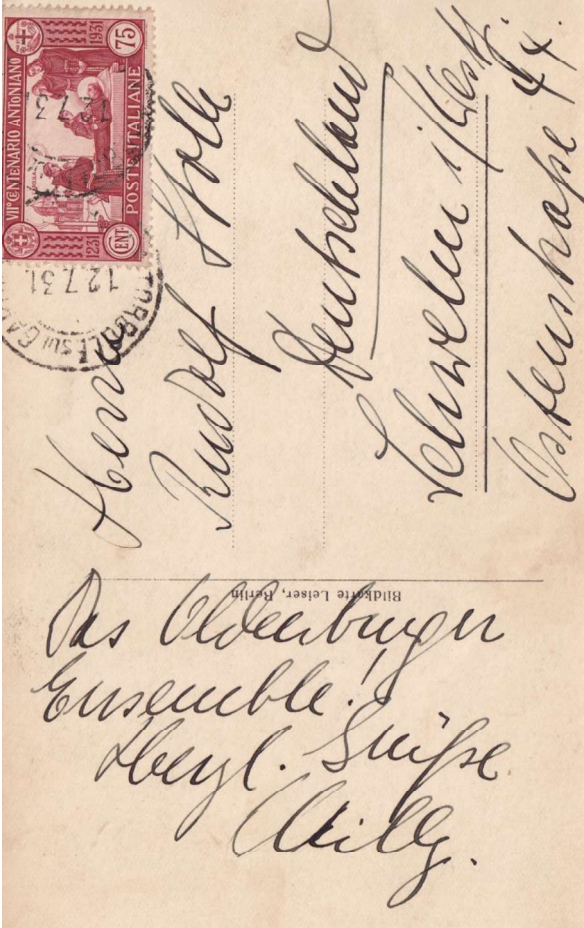 VII° CENTENARIO ANTONIANO
1231 1931
CENT 75
POSTE ITALIANE
12.7.31
Herrn
Rudolf
Deutschland
Schwelm i/Westf.
Bildkarte Leiser, Berlin
Das Oldenburger
Ensemble!
Herzl. Grüße
Willy.